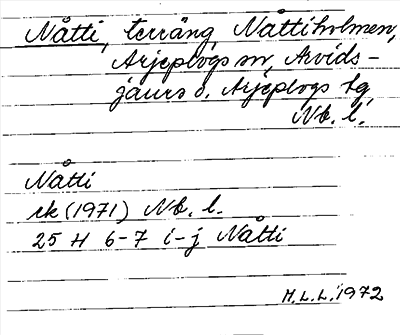 Nåtti, terräng, Nåttiholmen,
Arjeplogs sn, Arvids-
jaurs o. Arjeplogs tg,
Nb. l.
Nåtti
rk (1971) Nb. l.
25 H 6-7 i-j Nåtti
M.L.L. 1972